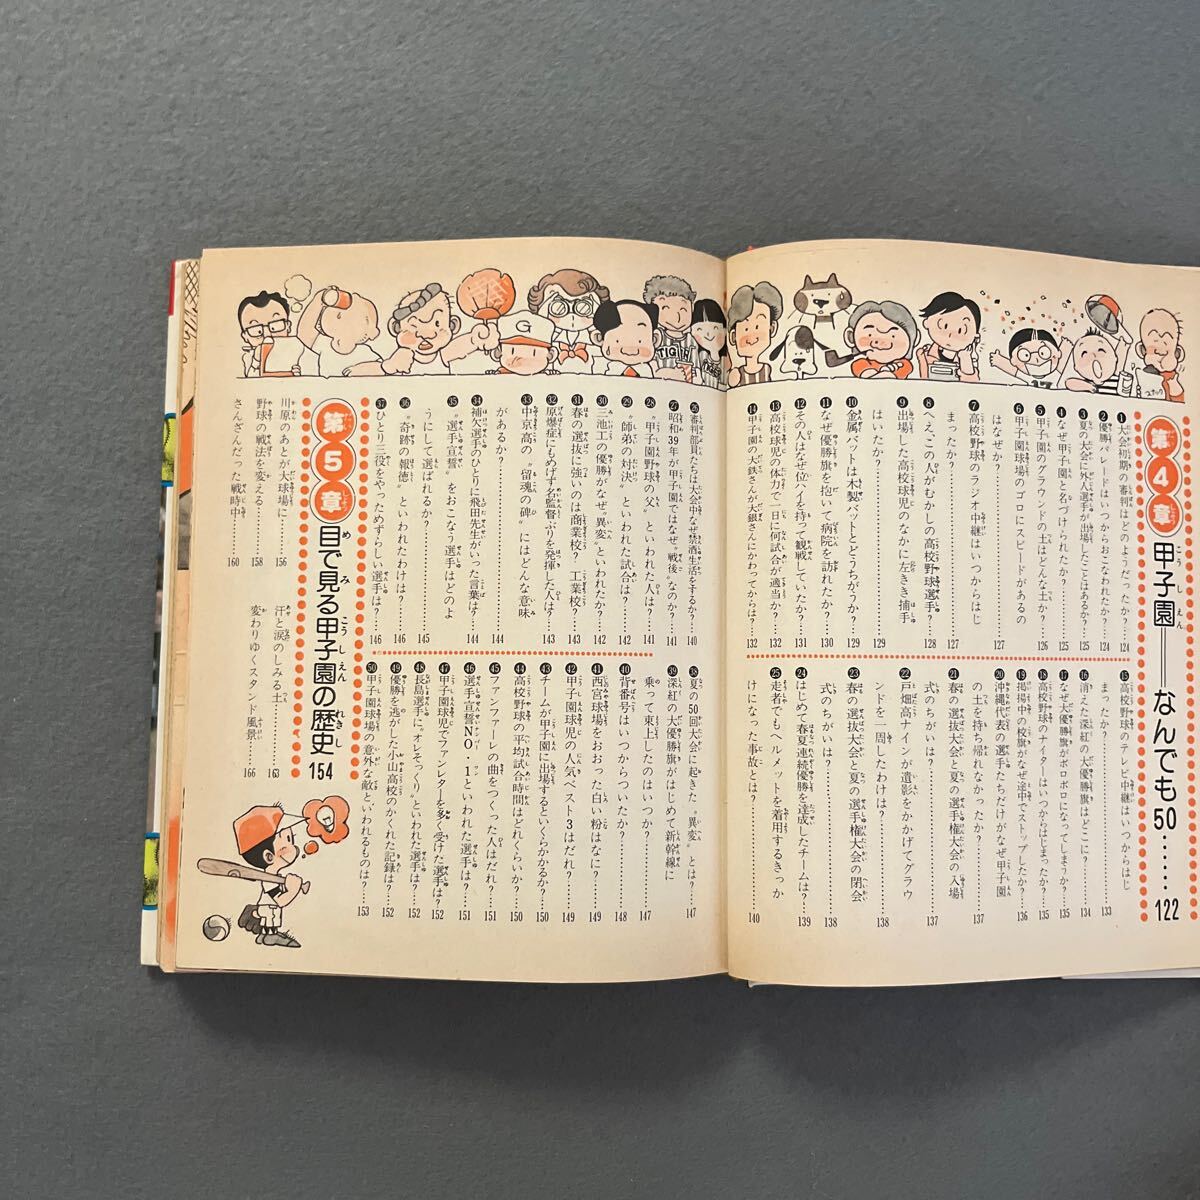 第4章 甲子園――なんでも50……122
❶大会初期の審判はどのようだったか?……124
❷優勝パレードはいつからおこなわれたか?……124
❸夏の大会に外人選手が出場したことはあるか?……125
❹なぜ甲子園と名づけられたか?……125
❺甲子園のグラウンドの土はどんな土か?……126
❻甲子園球場のゴロにスピードがあるの
はなぜか?……127
❼高校野球のラジオ中継はいつからはじ
まったか?……127
❽へえ、この人がむかしの高校野球選手?……128
❾出場した高校球児のなかに左きき捕手
はいたか?……129
❿金属バットは木製バットとどうちがう?……129
⓫なぜ優勝旗を抱いて病院を訪れたか?……130
⓬その人はなぜ位ハイを持って観戦していたか?……131
⓭高校球児の体力で一日に何試合が適当か?……132
⓮甲子園の大鉄さんが大銀さんにかわってからは?……132
⓯高校野球のテレビ中継はいつからはじ
まったか?……133
⓰消えた深紅の大優勝旗はどこに?……134
⓱なぜ大優勝旗がボロボロになってしまうか?……135
⓲高校野球のナイターはいつからはじまったか?……135
⓳掲揚中の校旗がなぜ途中でストップしたか?……136
⓴沖縄代表の選手たちだけがなぜ甲子園
の土を持ち帰れなかったか?……137
㉑春の選抜大会と夏の選手権大会の入場
式のちがいは?……137
㉒戸畑高ナインが遺影をかかげてグラウ
ンドを一周したわけは?……138
㉓春の選抜大会と夏の選手権大会の閉会
式のちがいは?……138
㉔はじめて春夏連続優勝を達成したチームは?……139
㉕走者でもヘルメットを着用するきっか
けになった事故とは?……140
㉖審判部員たちは大会中なぜ禁酒生活をするか?……140
㉗昭和39年が甲子園ではなぜ〝戦後〟なのか?……141
㉘〝甲子園野球の父〟といわれた人は?……141
㉙〝師弟の対決〟といわれた試合は?……142
㉚三池工の優勝がなぜ〝異変〟といわれたか?……142
㉛春の選抜に強いのは商業校?工業校?……143
㉜原爆症にもめげず名監督ぶりを発揮した人は?……143
㉝中京高の〝留魂の碑〟にはどんな意味
があるか?……144
㉞補欠選手のひとりに飛田先生がいった言葉は?……144
㉟〝選手宣誓〟をおこなう選手はどのよ
うにして選ばれるか?……145
㊱〝奇跡の報徳〟といわれたわけは?……146
㊲ひとり三役をやっためずらしい選手は?……146
㊳夏の50回大会に起きた〝異変〟とは?……147
㊴深紅の大優勝旗がはじめて新幹線に
乗って東上したのはいつか?……147
㊵背番号はいつからついたか?……148
㊶西宮球場をおおった白い粉はなに?……149
㊷甲子園球児の人気ベスト3はだれ?……149
㊸チームが甲子園に出場するといくらかかるか?……150
㊹高校野球の平均試合時間はどれくらいか?……150
㊺ファンファーレの曲をつくった人はだれ?……151
㊻選手宣誓NO・1といわれた選手は?……151
㊼甲子園球児でファンレターを多く受けた選手は?……152
㊽長島選手に〝オレそっくり〟といわれた選手は?……152
㊾優勝を逃がした小山高校のかくれた記録は?……152
㊿甲子園球場の意外な敵といわれるものは?……153
第5章 目で見る甲子園の歴史 154
川原のあとが大球場に……156
野球の戦法を変える……158
さんざんだった戦時中……160
汗と涙のしみる土……163
変わりゆくスタンド風景……166
G
TIG
TIGER
スナック
17